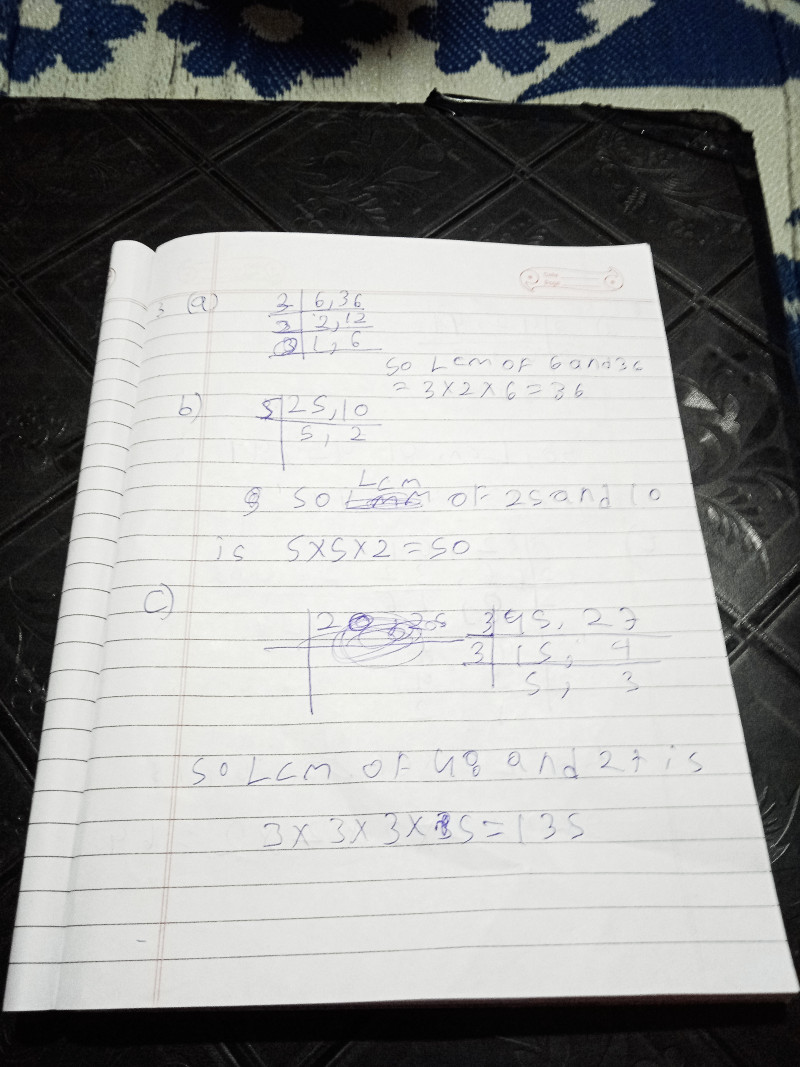 3 (a) 3 | 6, 36
2 | 2, 12
3 | 1, 6
So Lcm of 6 and 36
= 3 x 2 x 6 = 36
b) 5 | 25, 10
5, 2
Lcm
So of 25 and 10
is 5 x 5 x 2 = 50
c) 3 45, 27
3 15, 9
5, 3
So Lcm of 48 and 27 is
3 x 3 x 3 x 5 = 135